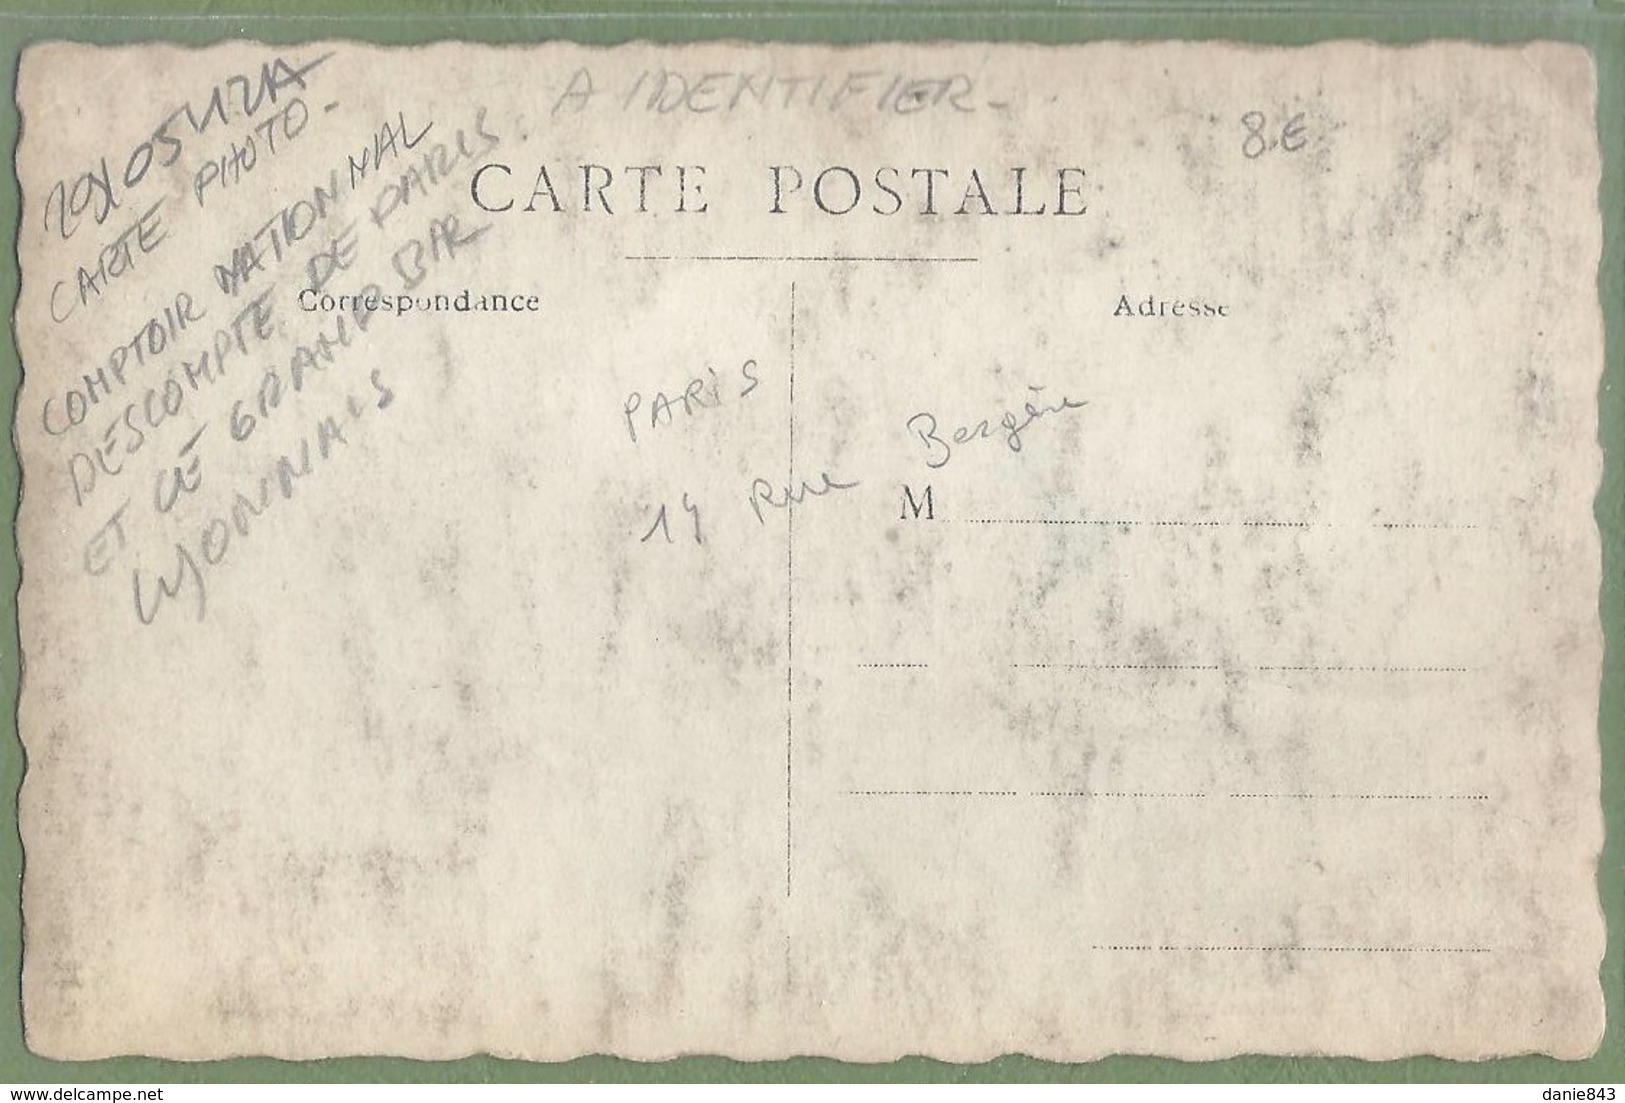 A IDENTIFIER -
8.€
CARTE PHOTO -
COMPTOIR NATIONNAL
DESCOMPTE DE PARIS.
ET CIE GRAND BAR
LYONNAIS
CARTE POSTALE
Correspondance
Adresse
PARIS
14 Rue Bergère
M
danie843